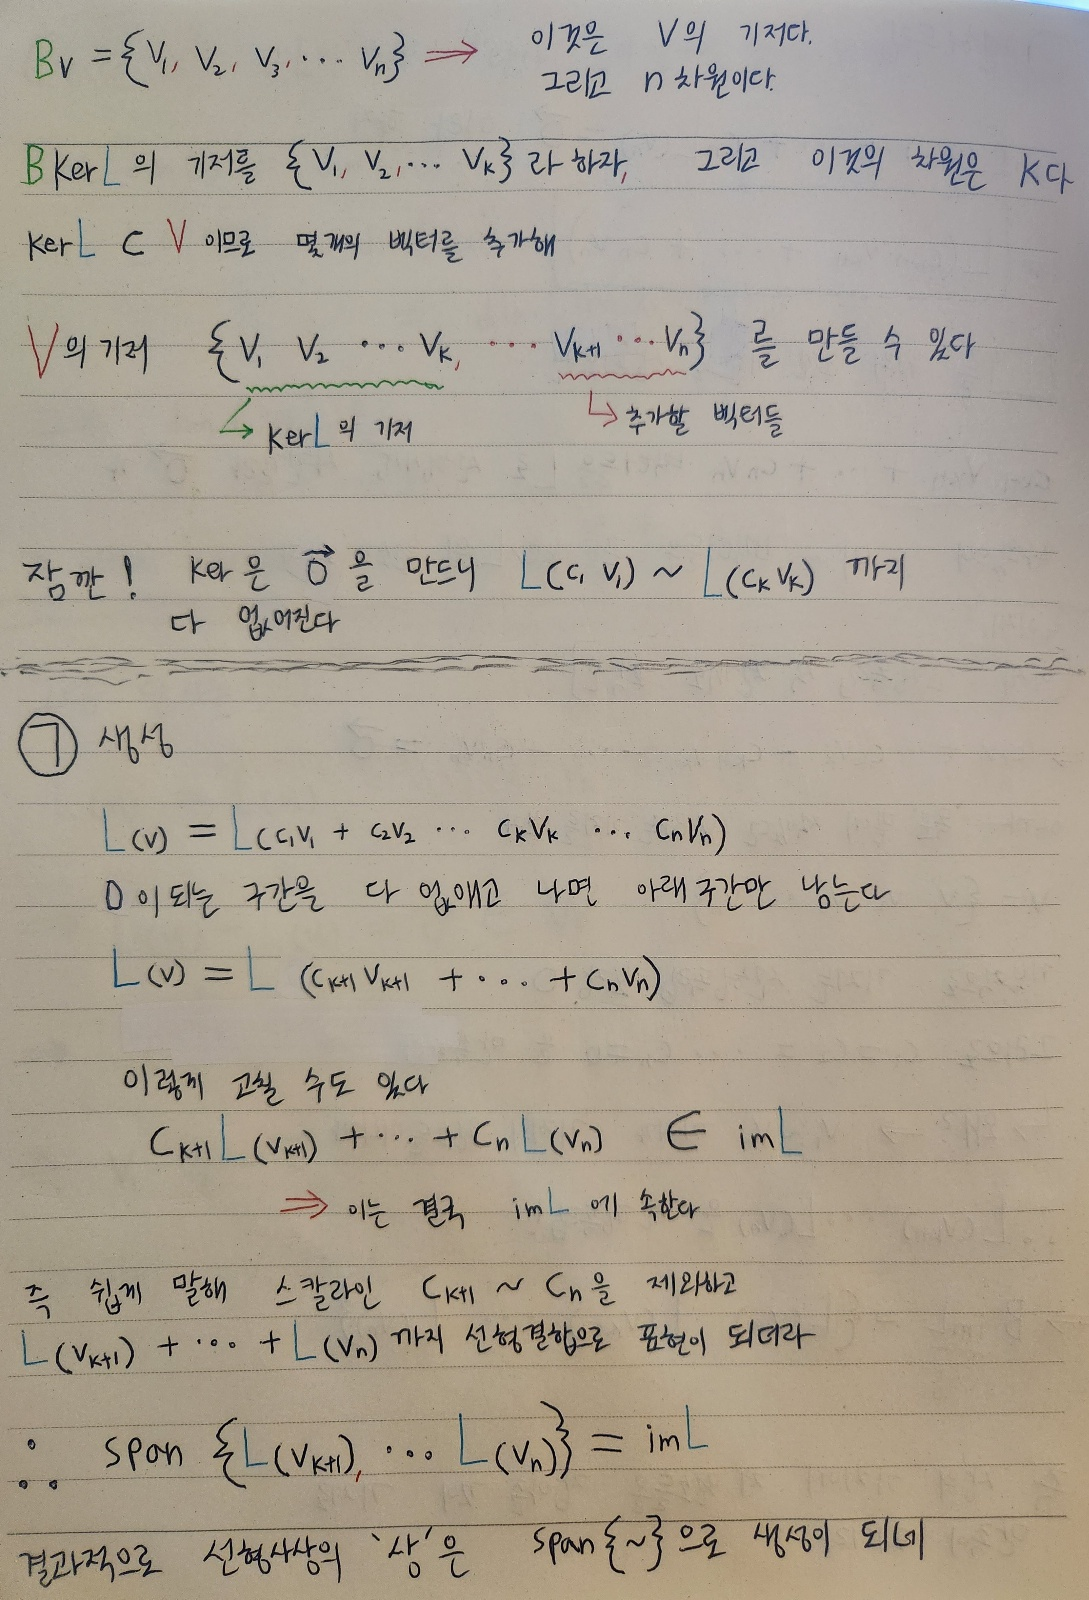 Bv = {V₁, V₂, V₃, ... Vn} ⇒ 이것은 V의 기저다.
그리고 n차원이다.
BKerL의 기저를 {V₁, V₂, ... Vk}라 하자, 그리고 이것의 차원은 K다
KerL ⊂ V 이므로 몇개의 벡터를 추가해
V의 기저 {V₁ V₂ ... Vk, ... Vk+1 ... Vn} 를 만들 수 있다
→ KerL의 기저 → 추가할 벡터들
잠깐! Ker은 0⃗을 만드니 L(C₁V₁) ~ L(CkVk) 까지
다 없어진다
ㄱ 생성
L(V) = L(C₁V₁ + C₂V₂ ... CkVk ... CnVn)
0이 되는 구간을 다 없애고 나면 아래 구간만 남는다
L(V) = L (Ck+1Vk+1 + ... + CnVn)
이렇게 고칠 수도 있다
Ck+1L(Vk+1) + ... + CnL(Vn) ∈ imL
⇒ 이는 결국 imL에 속한다
즉 쉽게 말해 스칼라인 Ck+1 ~ Cn을 제외하고
L(Vk+1) + ... + L(Vn)까지 선형결합으로 표현이 되더라
∴ span {L(Vk+1), ... L(Vn)} = imL
결과적으로 선형사상의 '상'은 span{~}으로 생성이 되네